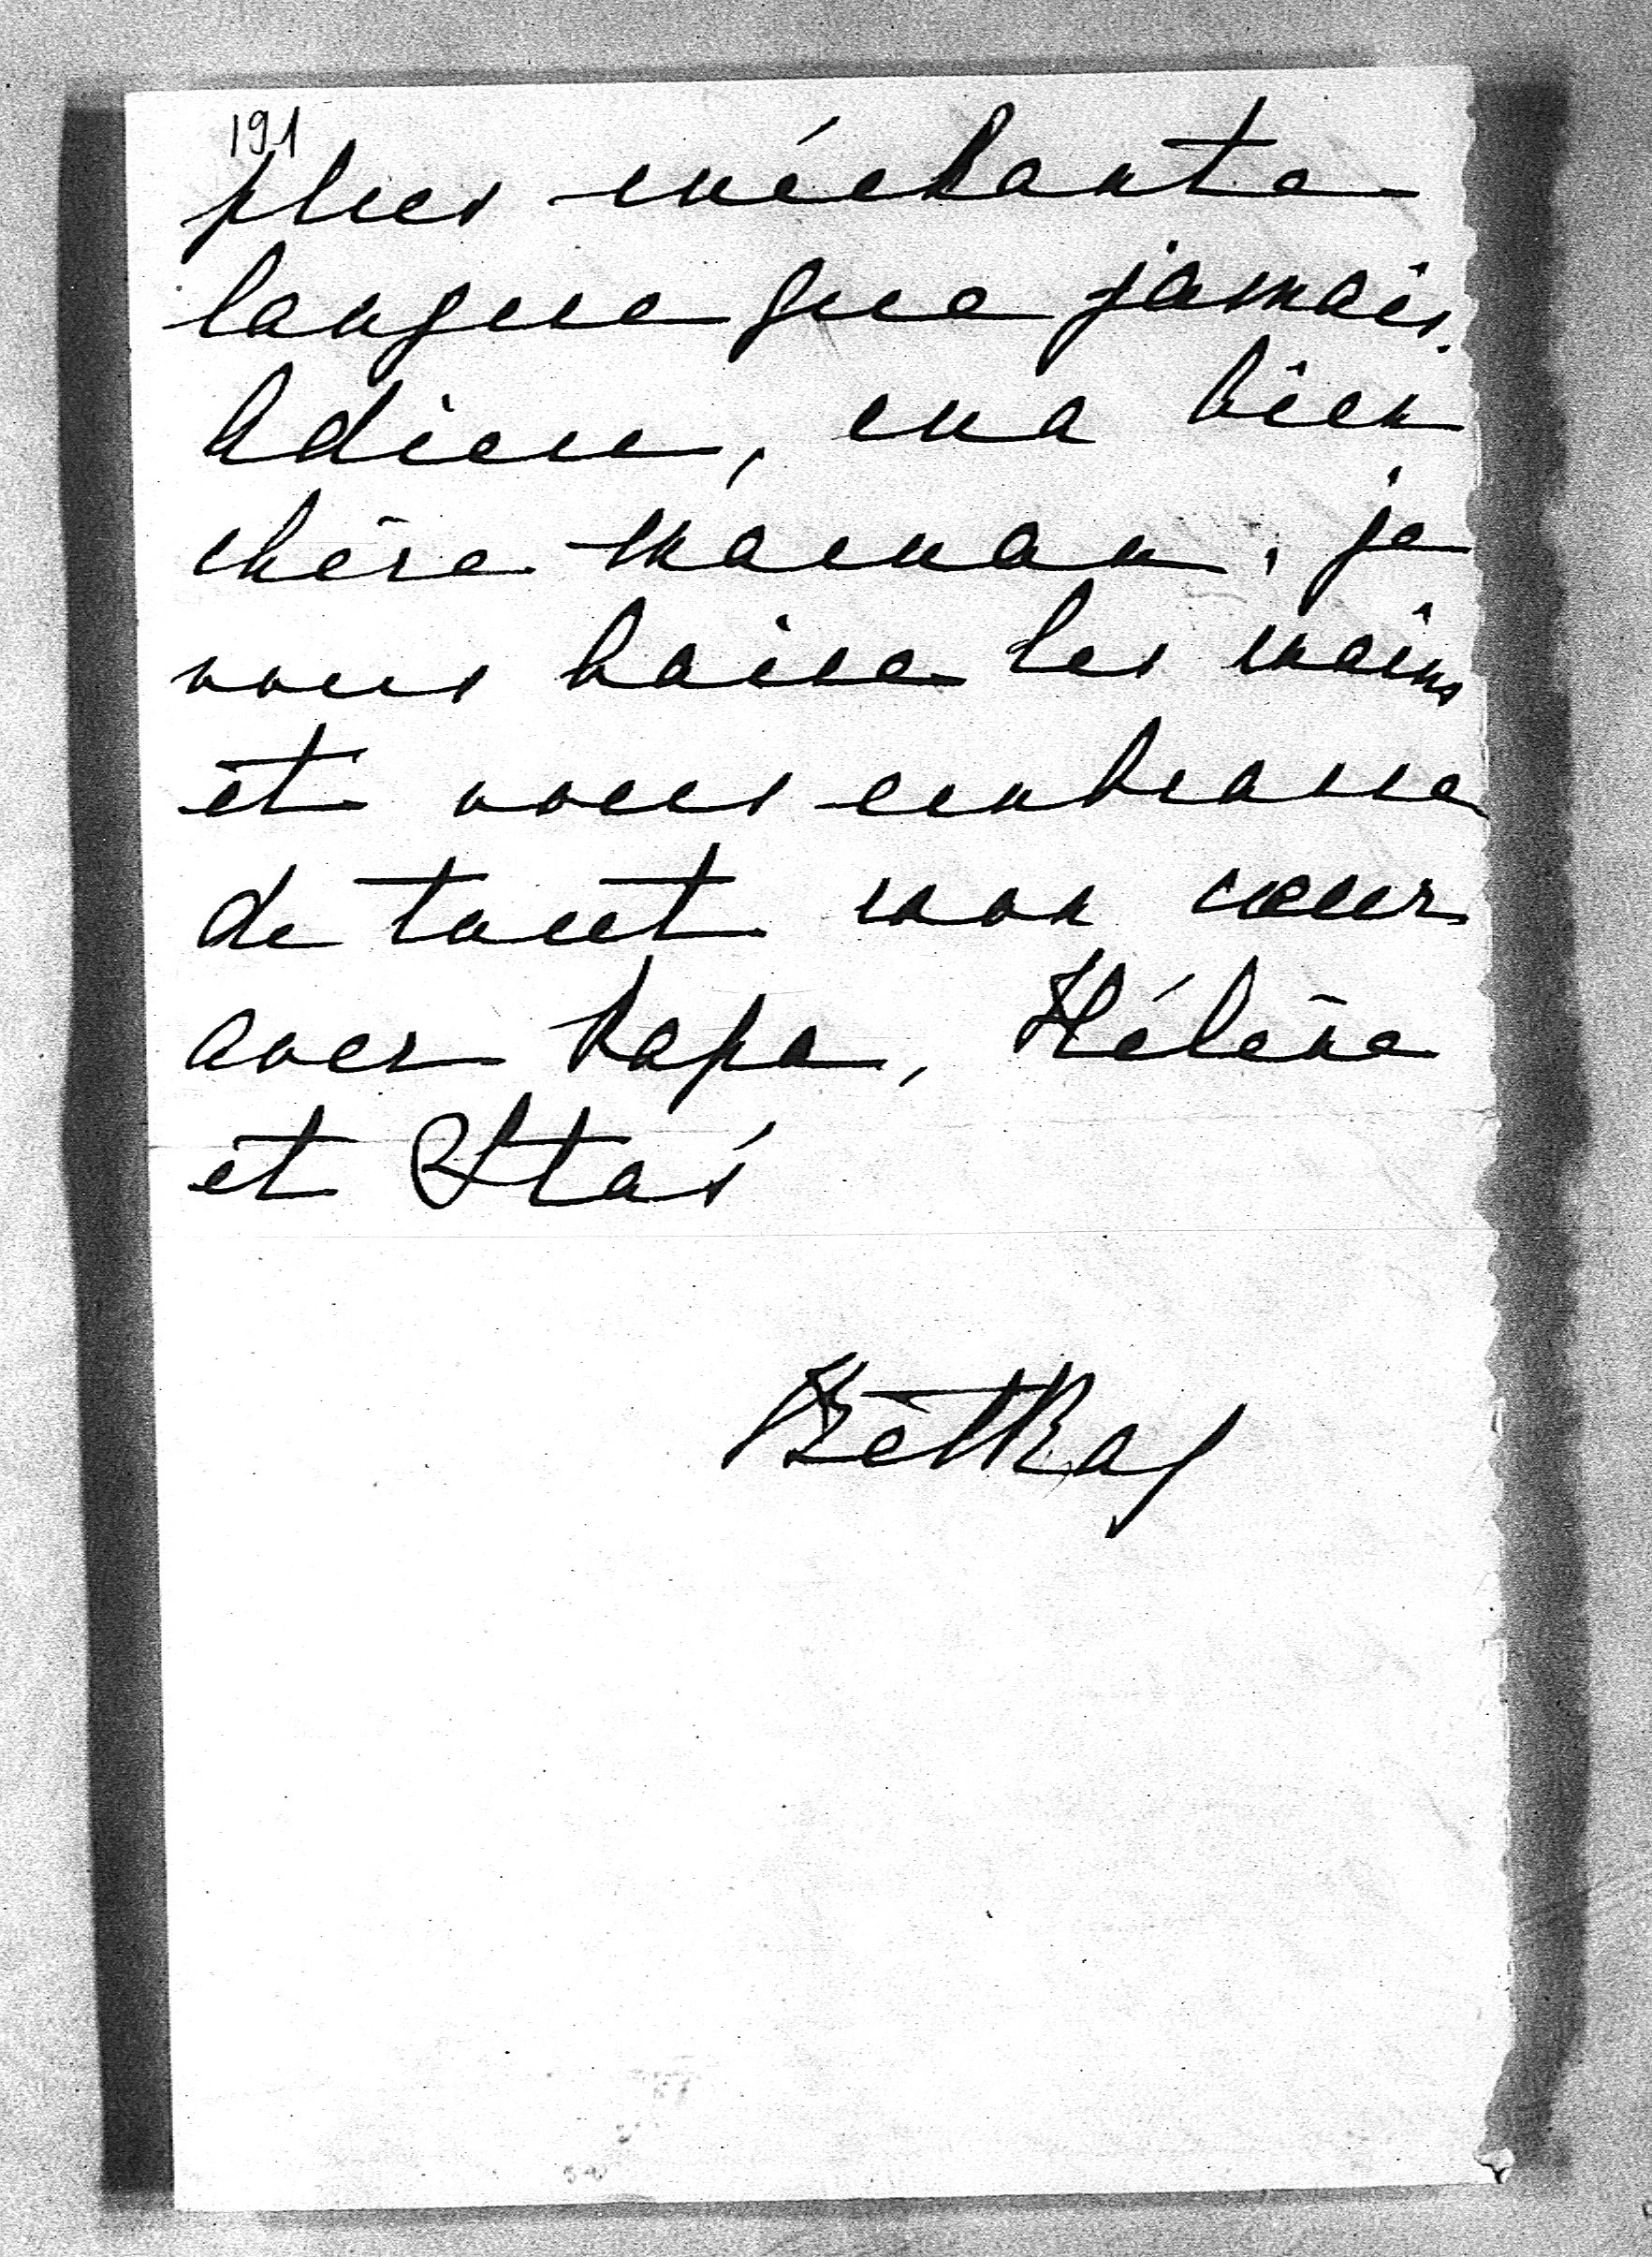 191
plus méchante
langue que jamais.
Adieu, ma bien
chère Maman, je
vous baise les mains
et vous embrasse
de tout mon cœur
avec Papa, Hélène
et Staś